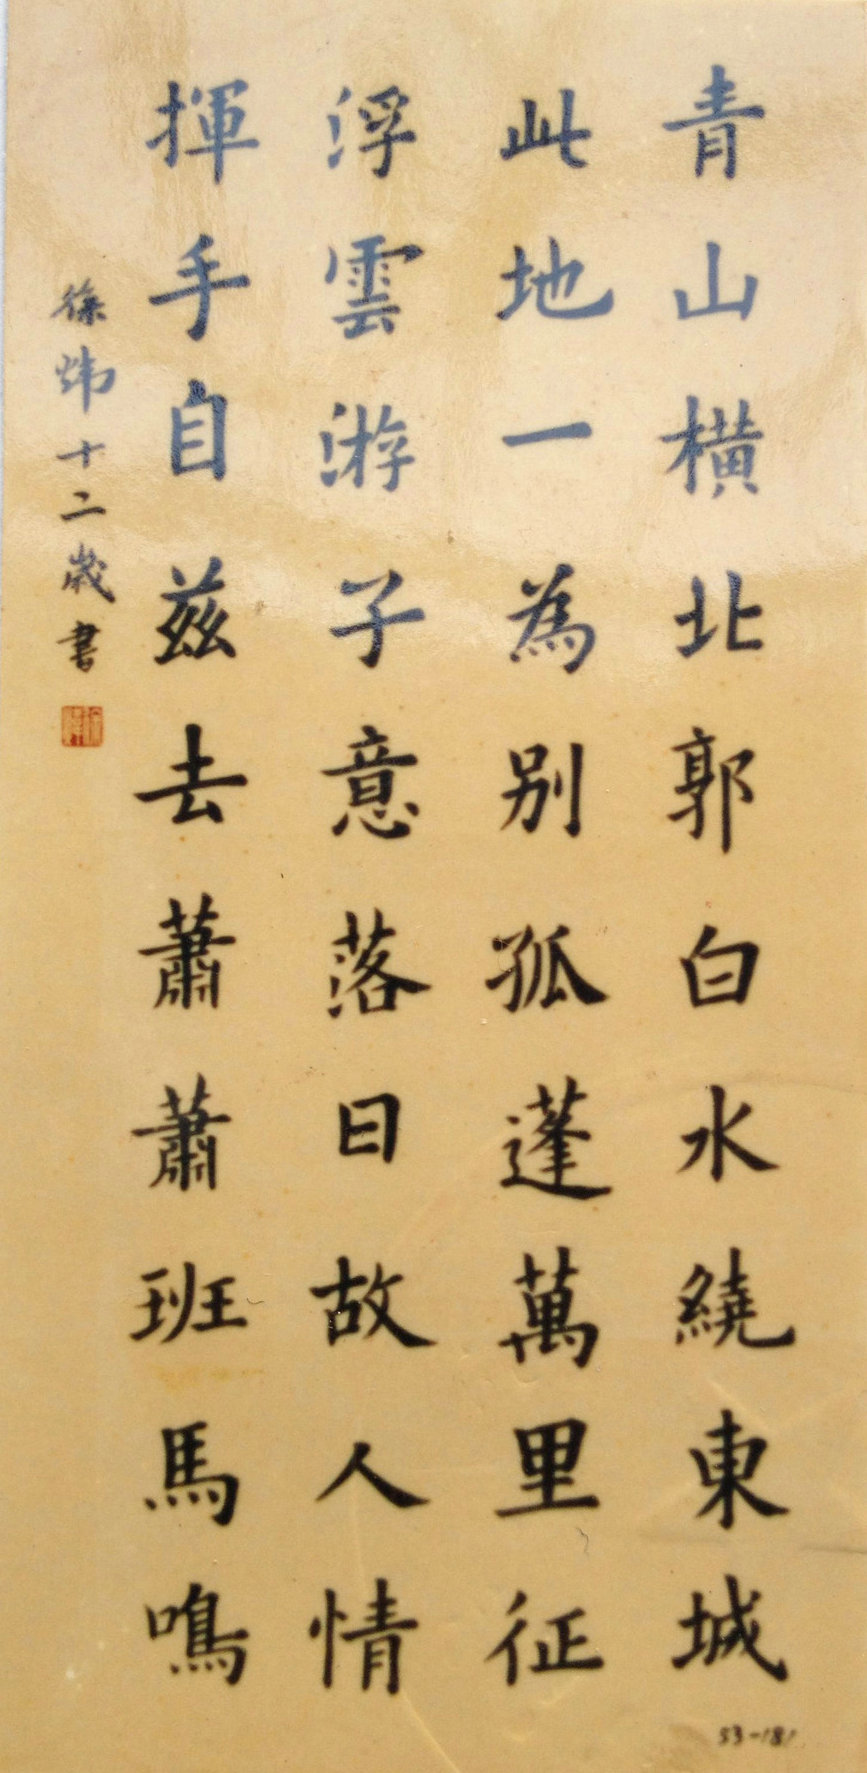 青山橫北郭白水繞東城
此地一為別孤蓬萬里征
浮雲游子意落日故人情
揮手自茲去蕭蕭班馬鳴
徐煒十二歲書
53-181